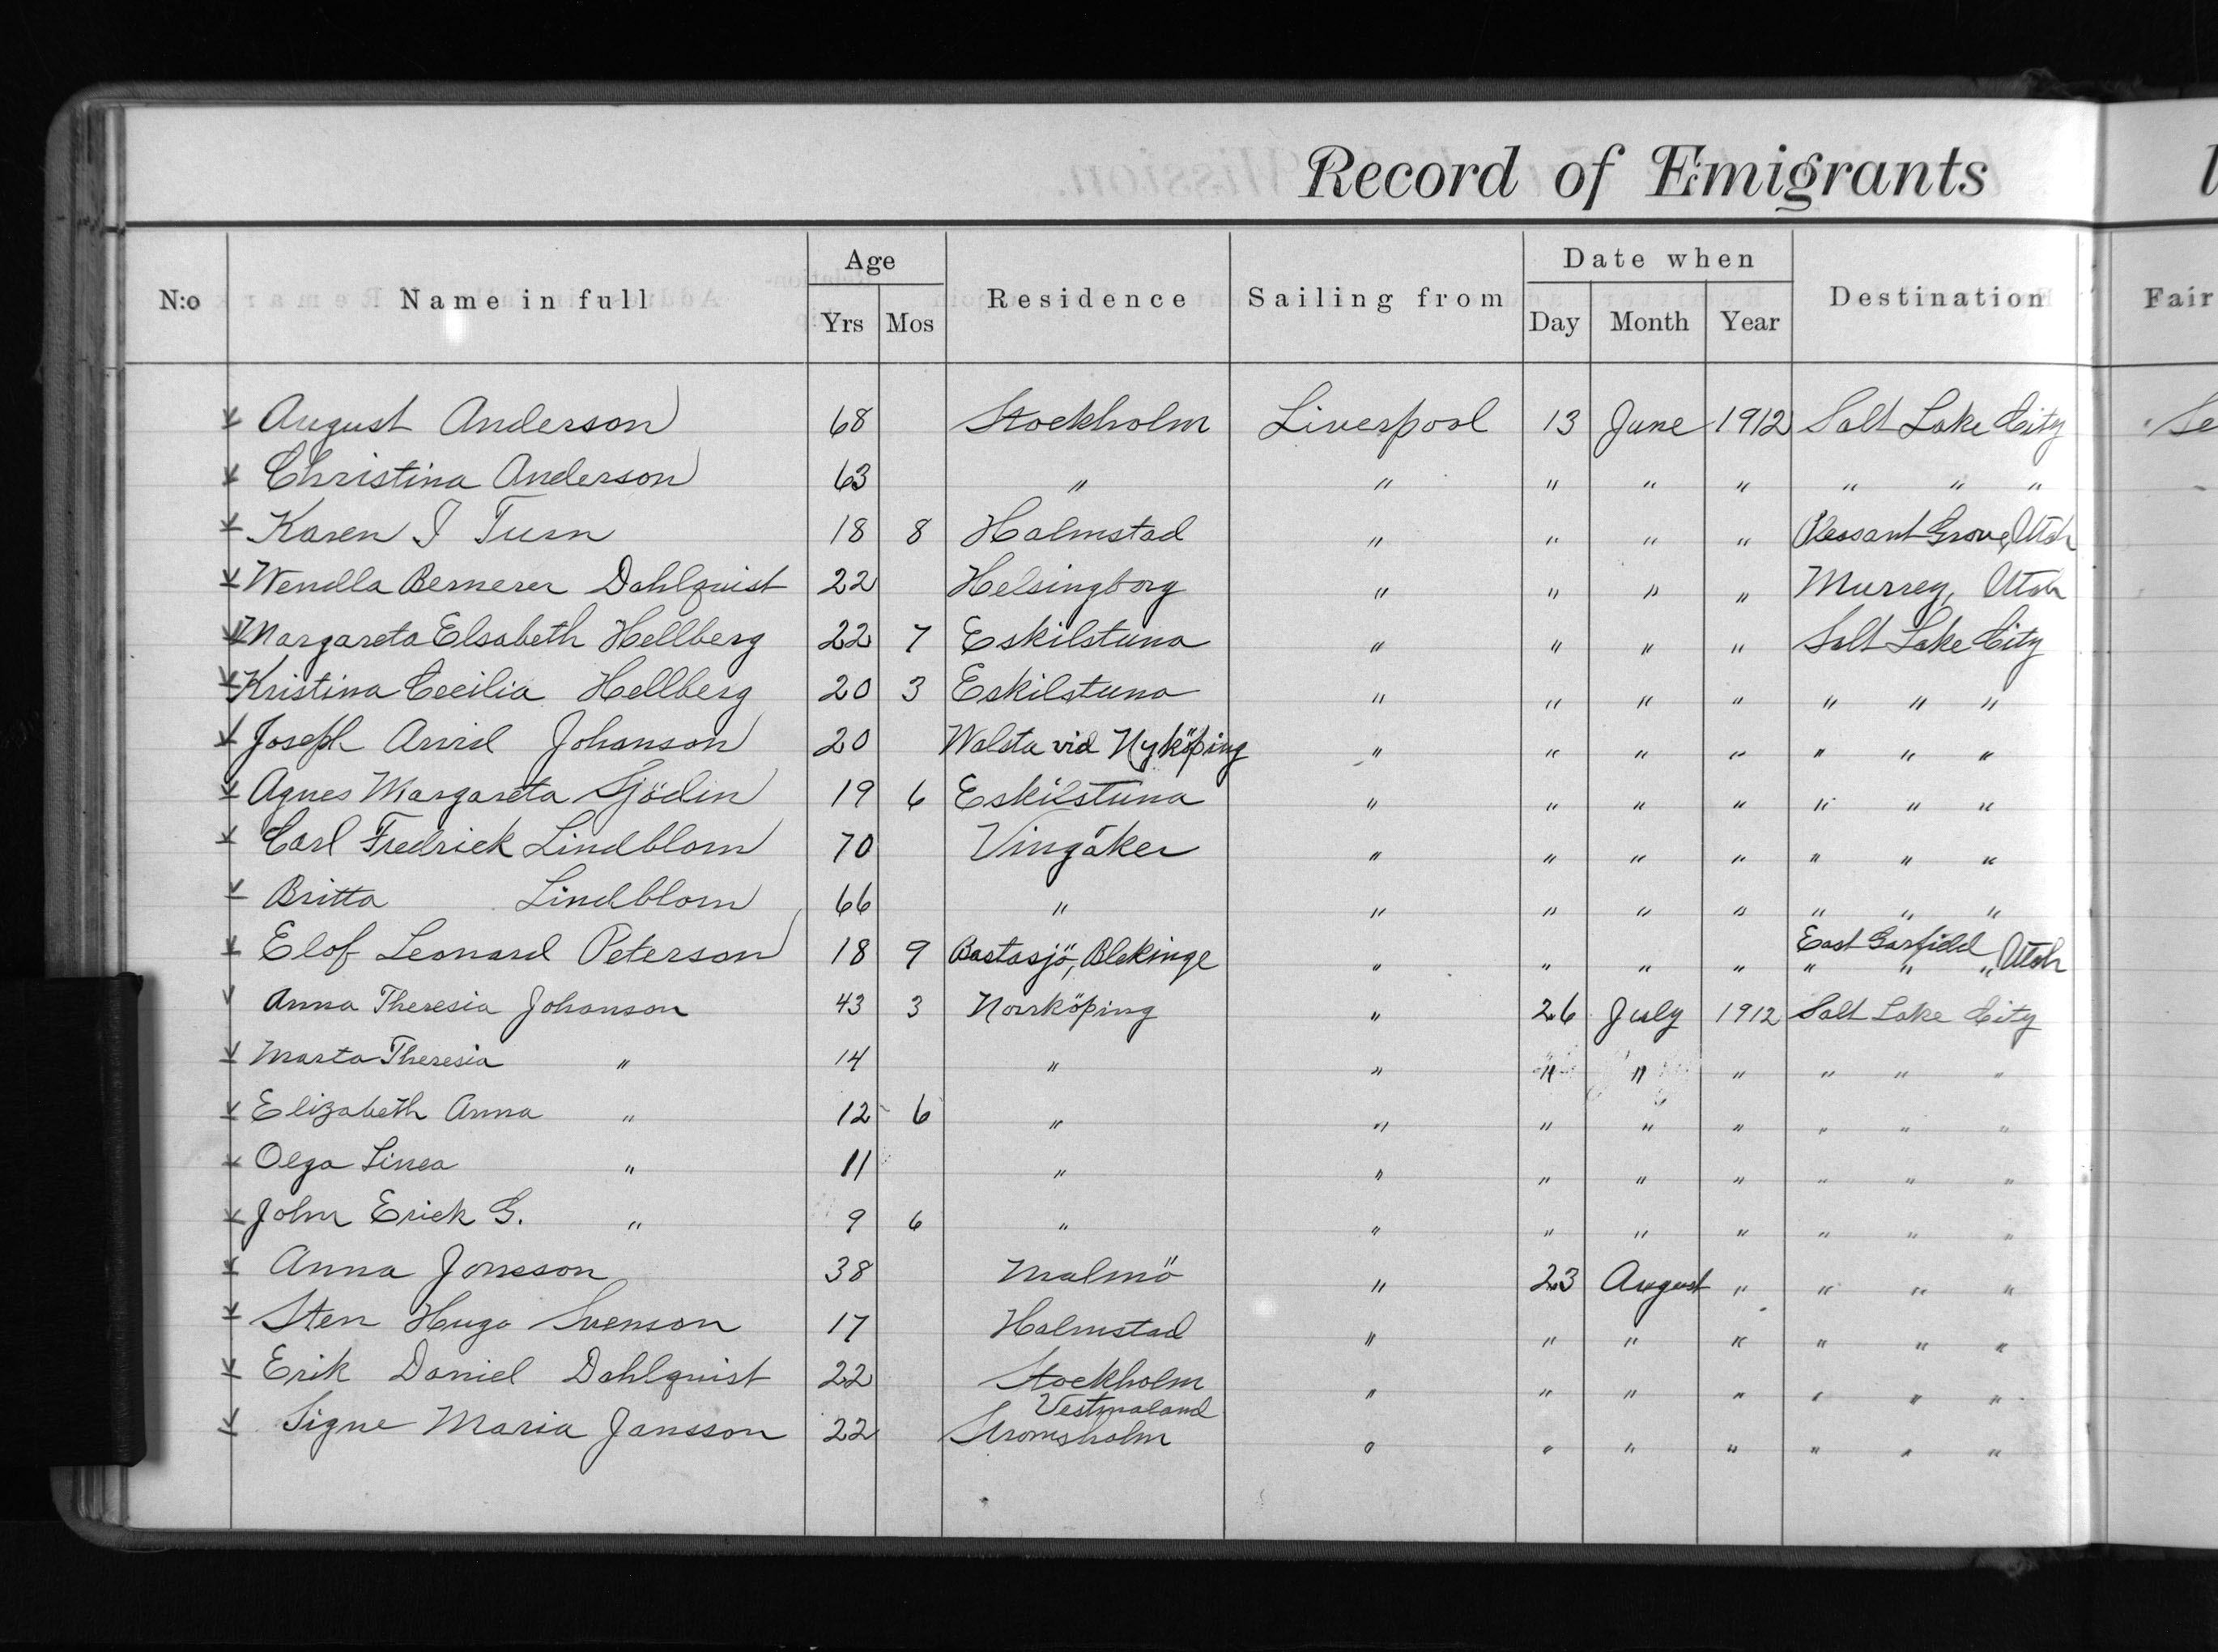 Record of Emigrants
N:o Name in full Age Yrs Mos Residence Sailing from Date when Day Month Year Destination Fair
August Anderson 68 Stockholm Liverpool 13 June 1912 Salt Lake City Se
Christina Anderson 63 " " " " " " " "
Karen I Turn 18 8 Halmstad " " " " Pleasant Grove, Utah
Wendla Dahlquist 22 Helsingborg " " " " Murrey, Utah
Margareta Elsabeth Hellberg 22 7 Eskilstuna " " " " Salt Lake City
Kristina Cecilia Hellberg 20 3 Eskilstuna " " " " " " "
Joseph Arvid Johanson 20 Walsta vid Nyköping " " " " " " "
Agnes Margareta Sjödin 19 6 Eskilstuna " " " " " " "
Carl Fredrick Lindblom 70 Vingåker " " " " " " "
Britta Lindblom 66 " " " " " " " "
Elof Leonard Peterson 18 9 Bastasjö, Blekinge " " " " East Garfield " " " Utah
Anna Theresia Johanson 43 3 Norrköping " 26 July 1912 Salt Lake City
Marta Theresia " 14 " " " " " " " "
Elizabeth Anna " 12 6 " " " " " " " "
Olga Linea " 11 " " " " " " " "
John Erick G. " 9 6 " " " " " " " "
Anna Jonsson 38 Malmö " 23 August " " " "
Sten Hugo Svenson 17 Halmstad " " " " " " "
Erik Daniel Dahlquist 22 Stockholm " " " " " " "
Signe Maria Jansson 22 Vestmaland Stromsholm " " " " " " "